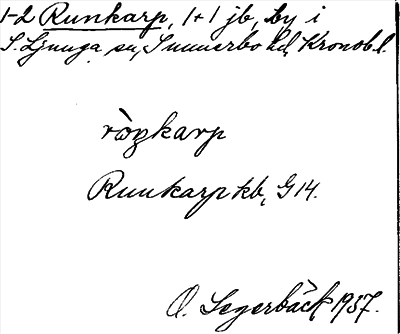 1-2 Runkarp, 1+1 jb, by i
S. Ljunga sn, Sunnerbo hd, Kronob. l.
ròŋkarp
Runkarp kb, G 14.
O. Segerbäck 1957.